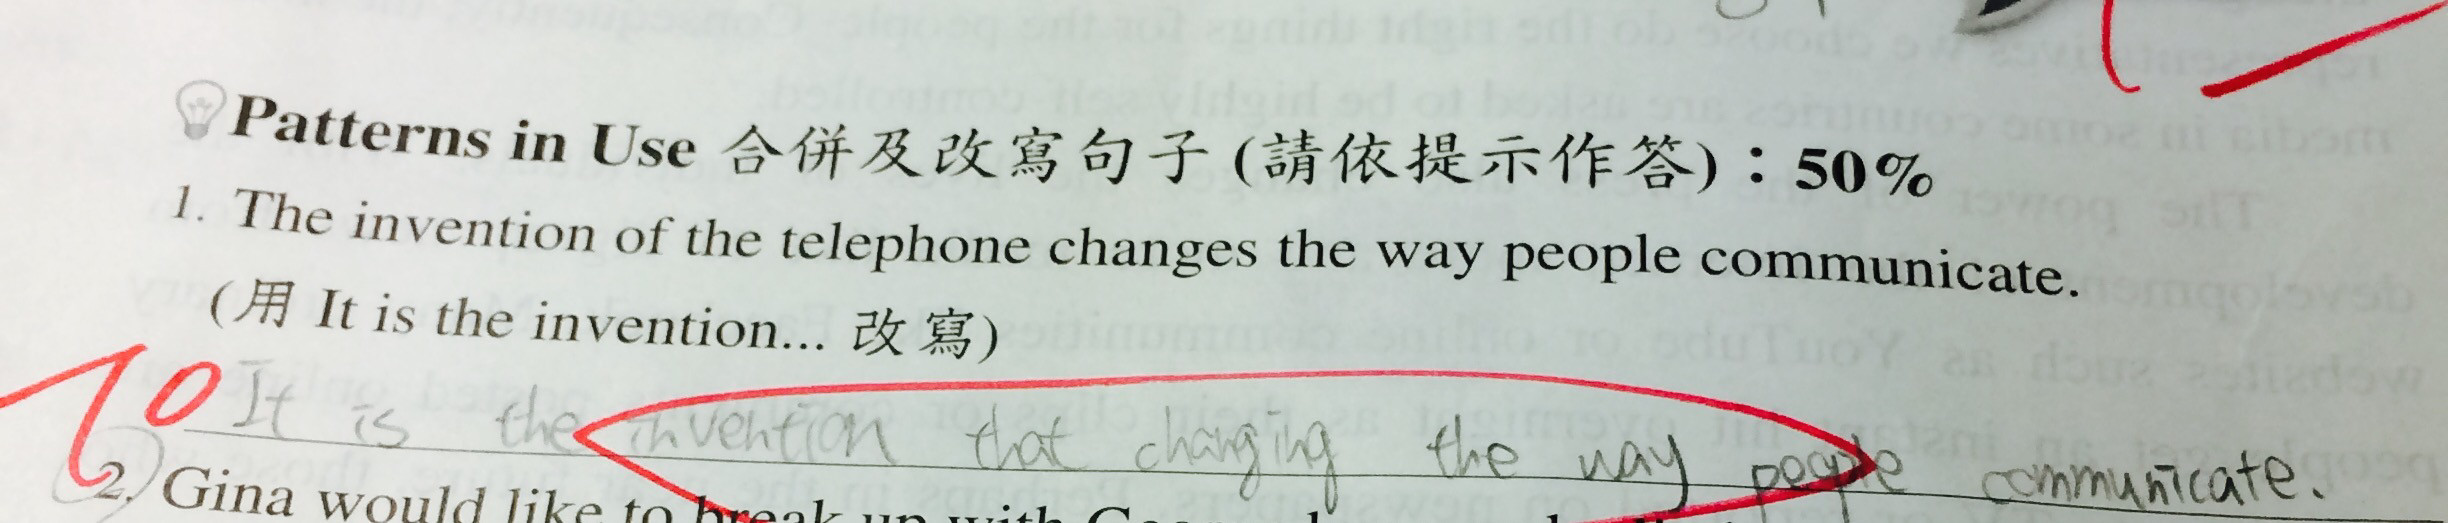 Patterns in Use 合併及改寫句子 (請依提示作答)：50%
1. The invention of the telephone changes the way people communicate.
(用 It is the invention... 改寫)
It is the invention that changing the way people communicate.
2. Gina would like to break up with